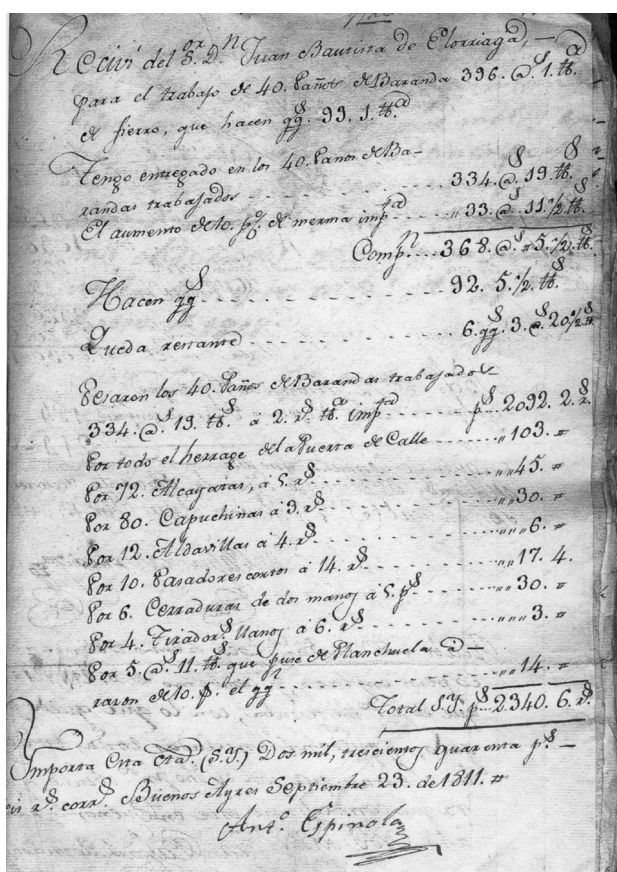 Recivi del S.or D.n Juan Bautista de Elorriaga,
para el trabajo de 40. Paños de Baranda 396. @.s 1. lb.a
de fierro, que hacen qq.s 99. 1. lb.a
Tengo entregado en los 40. Panos de Ba-
randas trabajados 334. @.s 19. lb.s
El aumento de 10. p% de merma imp.ta " 33. @.s 11.1/2 lb.s
Comp.n 368. @.s " 5.1/2. lb.s
Hacen qq.s 92. 5.1/2 lb.s
Queda restante 6. qq.s 3. @.s 20 1/2 lb.s
Pesaron los 40. Paños de Barandas trabajados
334. @.s 19. lb.s a 2. r.s lb.a imp.ta p.s 2092. 2. r.s
Por todo el herrage de la Puerta de Calle " 103. "
Por 72. Alcayatas, a 5. r.s " " 45. "
Por 80. Capuchinas a 3. r.s " " 30. "
Por 12. Aldavillas a 4. r.s " " " 6. "
Por 10. Pasadores cortos a 14. r.s " " 17. 4.
Por 6. Cerraduras de dos manos a 5. p.s " " 30. "
Por 4. Tirador.s llanos a 6. r.s " " " 3. "
Por 5. @.s 11. lb.s que puse de Planchuela a
razon de 10. p.s el qq.l " " 14. "
Total S.Y. p.s 2340. 6. r.s
Importa Esta Cta. (S.Y.) Dos mil, trescientos quarenta p.s
r.s corr.s Buenos Ayres Septiembre 23. de 1811. "
Ant.o Espinola